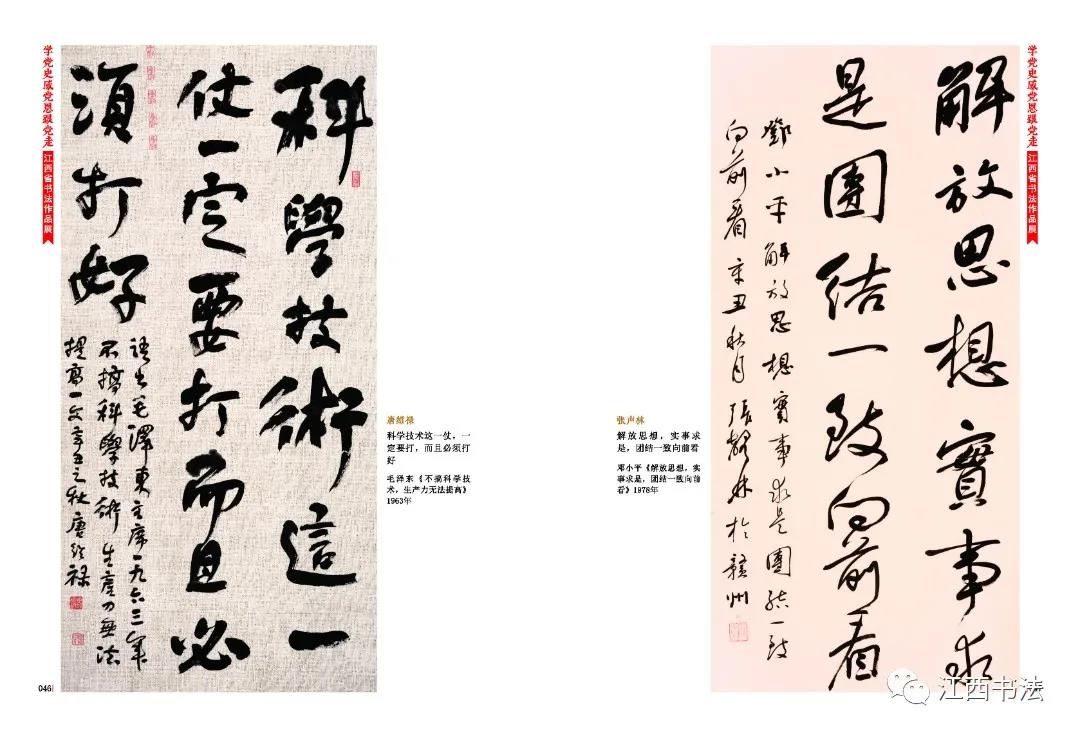 学党史感党恩跟党走
江西省书法作品展
科學技術這一
仗一定要打而且必
須打好
語出毛澤東主席一九六三年
不搞科學技術生產力無法
提高一文辛丑之秋唐绍禄
唐绍禄
科学技术这一仗，一
定要打，而且必须打
好
毛泽东《不搞科学技
术，生产力无法提高》
1963年
046
学党史感党恩跟党走
江西省书法作品展
解放思想實事求
是團結一致向前看
鄧小平解放思想實事求是團結一致
向前看辛丑秋月張聲林於贛州
张声林
解放思想，实事求
是，团结一致向前看
邓小平《解放思想，实
事求是，团结一致向前
看》1978年
江西书法